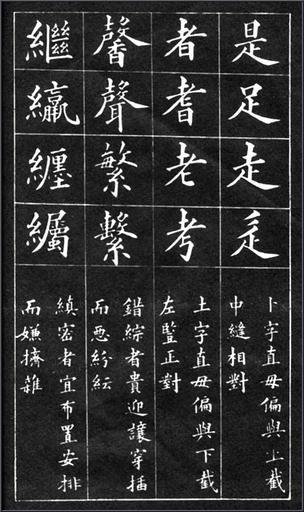 是足走
卜字直毋偏與上截
中縫相對
者耆老考
土字直毋偏與下截
左豎正對
馨聲繁繫
錯綜者貴迎讓穿插
而惡紛紜
繼纏
縝密者宜布置安排
而嫌擠雜